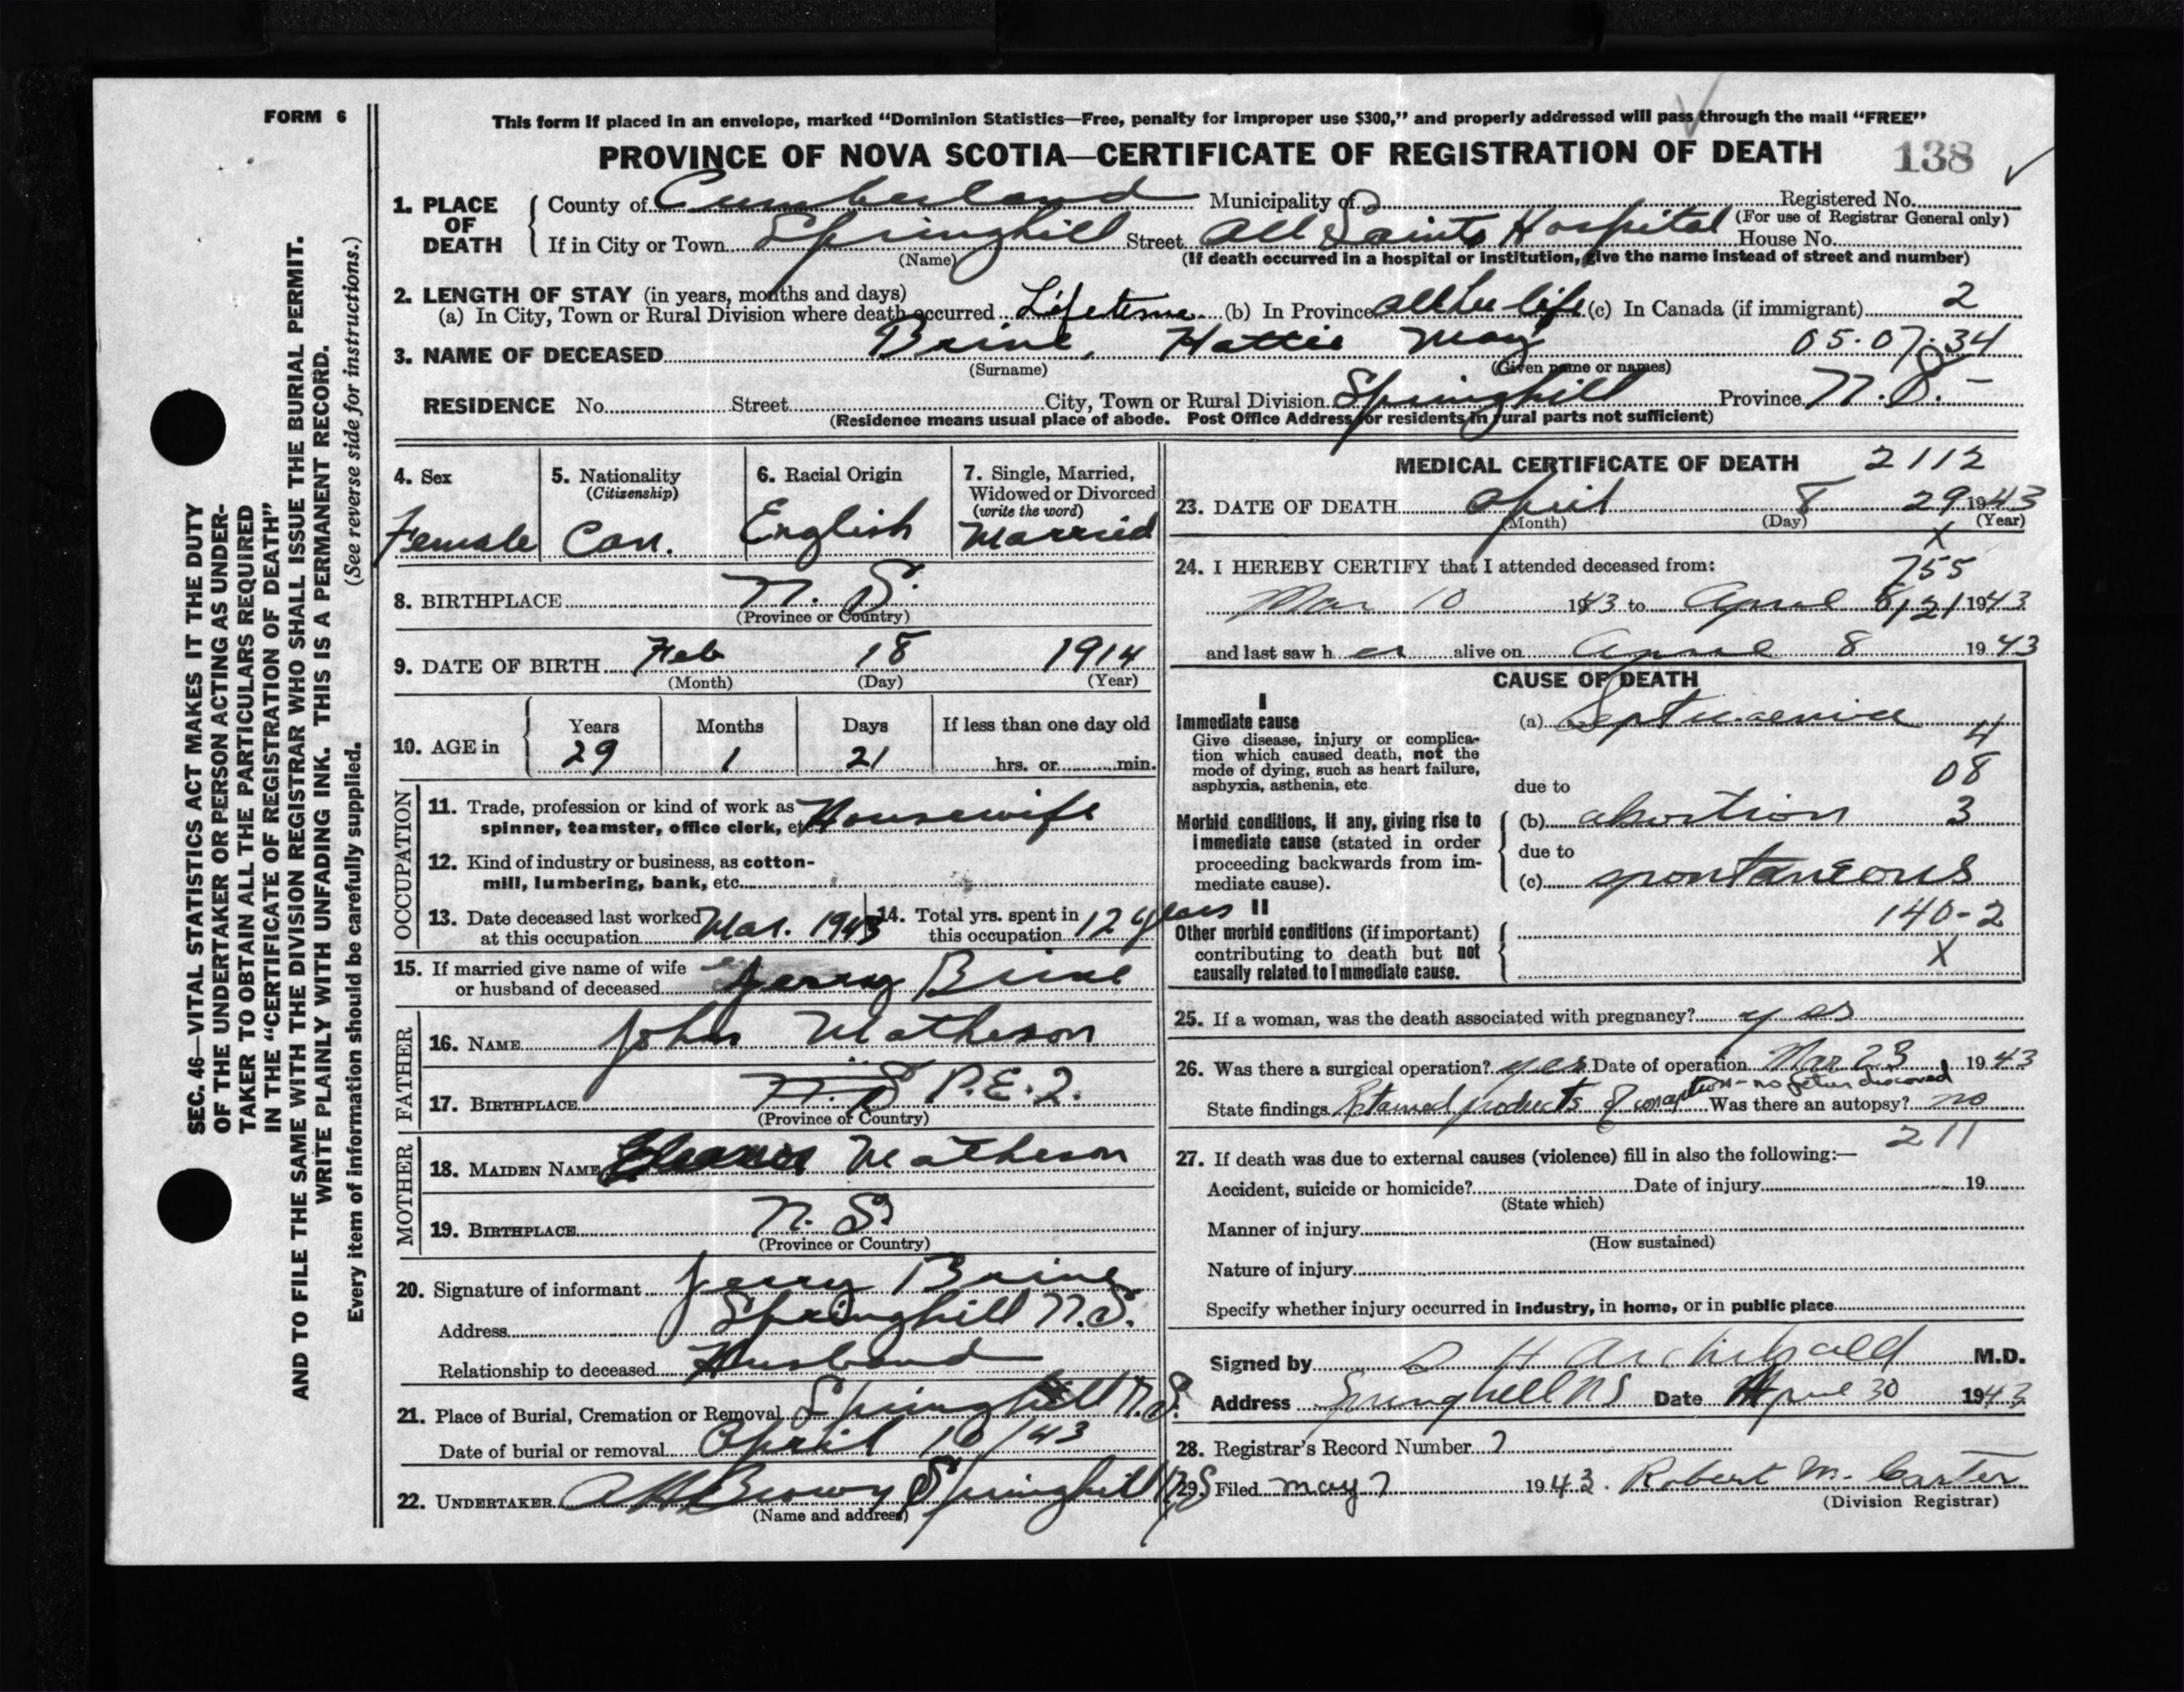 FORM 6
This form if placed in an envelope, marked “Dominion Statistics—Free, penalty for improper use $300,” and properly addressed will pass through the mail “FREE”
PROVINCE OF NOVA SCOTIA—CERTIFICATE OF REGISTRATION OF DEATH 138
1. PLACE OF DEATH
County of Cumberland Municipality of Registered No.
(For use of Registrar General only)
If in City or Town Springhill Street All Saints Hospital House No.
(Name) (If death occurred in a hospital or institution, give the name instead of street and number)
2. LENGTH OF STAY (in years, months and days)
(a) In City, Town or Rural Division where death occurred Lifetime (b) In Province all her life (c) In Canada (if immigrant) 2
3. NAME OF DECEASED Brine, Hattie May 05.07.34
(Surname) (Given name or names)
RESIDENCE No. Street City, Town or Rural Division Springhill Province N.S.
(Residence means usual place of abode. Post Office Address for residents in rural parts not sufficient)
4. Sex
Female
5. Nationality
(Citizenship)
Can.
6. Racial Origin
English
7. Single, Married,
Widowed or Divorced
(write the word)
Married
8. BIRTHPLACE N. S.
(Province or Country)
9. DATE OF BIRTH Feb 18 1914
(Month) (Day) (Year)
10. AGE in
Years Months Days If less than one day old
29 1 21 hrs. or min.
OCCUPATION
11. Trade, profession or kind of work as
spinner, teamster, office clerk, etc. Housewife
12. Kind of industry or business, as cotton-
mill, lumbering, bank, etc.
13. Date deceased last worked
at this occupation Mar. 1943
14. Total yrs. spent in
this occupation 12 years
15. If married give name of wife
or husband of deceased Jerry Brine
FATHER
16. NAME John Matheson
17. BIRTHPLACE N.S P.E.I.
(Province or Country)
MOTHER
18. MAIDEN NAME Matheson
19. BIRTHPLACE N. S.
(Province or Country)
20. Signature of informant Jerry Brine
Address Springhill N.S.
Relationship to deceased Husband
21. Place of Burial, Cremation or Removal Springhill N.S.
Date of burial or removal April 10/43
22. UNDERTAKER Brown Springhill N.S
(Name and address)
MEDICAL CERTIFICATE OF DEATH 2112
23. DATE OF DEATH April 8 29 1943
(Month) (Day) (Year)
X
24. I HEREBY CERTIFY that I attended deceased from:
755
Mar 10 1943 to April 8 121 1943
and last saw h er alive on April 8 1943
CAUSE OF DEATH
I
Immediate cause
Give disease, injury or complica-
tion which caused death, not the
mode of dying, such as heart failure,
asphyxia, asthenia, etc.
(a) Septicaemia 4
due to 08
Morbid conditions, if any, giving rise to
immediate cause (stated in order
proceeding backwards from im-
mediate cause).
(b) abortion 3
due to
(c) spontaneous
II
Other morbid conditions (if important)
contributing to death but not
causally related to immediate cause.
140-2
X
25. If a woman, was the death associated with pregnancy? yes
26. Was there a surgical operation? yes Date of operation Mar 23 1943
State findings Retained products of conception - no fetus discovered Was there an autopsy? no
211
27. If death was due to external causes (violence) fill in also the following:—
Accident, suicide or homicide? Date of injury 19
(State which)
Manner of injury
(How sustained)
Nature of injury
Specify whether injury occurred in industry, in home, or in public place
Signed by H Archibald M.D.
Address Springhill NS Date April 30 1943
28. Registrar's Record Number 7
29. Filed May 7 1943. Robert M. Carter
(Division Registrar)
SEC. 46—VITAL STATISTICS ACT MAKES IT THE DUTY
OF THE UNDERTAKER OR PERSON ACTING AS UNDER-
TAKER TO OBTAIN ALL THE PARTICULARS REQUIRED
IN THE “CERTIFICATE OF REGISTRATION OF DEATH”
AND TO FILE THE SAME WITH THE DIVISION REGISTRAR WHO SHALL ISSUE THE BURIAL PERMIT.
WRITE PLAINLY WITH UNFADING INK. THIS IS A PERMANENT RECORD.
Every item of information should be carefully supplied. (See reverse side for instructions.)